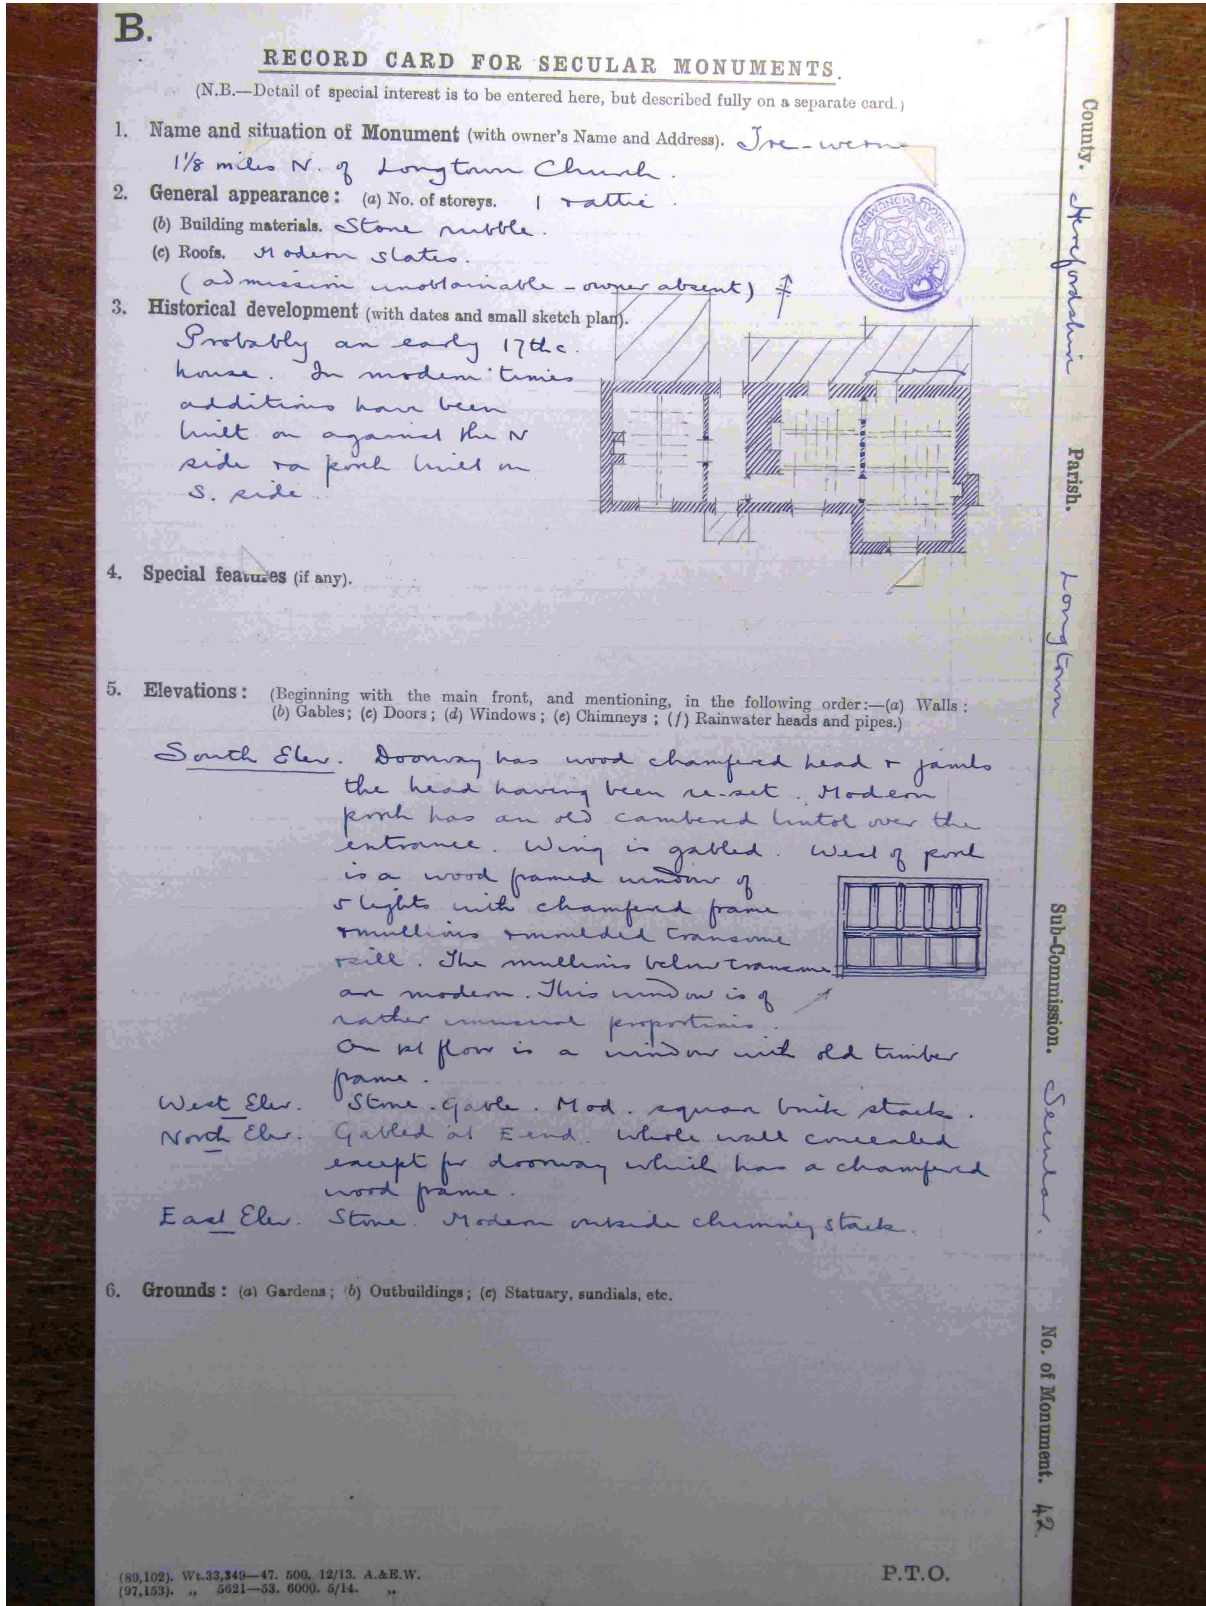 B.
RECORD CARD FOR SECULAR MONUMENTS.
(N.B.—Detail of special interest is to be entered here, but described fully on a separate card.)
1. Name and situation of Monument (with owner's Name and Address). Tre-wern
1⅛ miles N. of Longtown Church.
2. General appearance: (a) No. of storeys. 1 + attic.
(b) Building materials. Stone rubble.
(c) Roofs. Modern slates.
(admission unobtainable - owner absent)
3. Historical development (with dates and small sketch plan).
Probably an early 17th c.
house. In modern times
additions have been
built on against the N
side + a porch built on
S. side
4. Special features (if any).
5. Elevations: (Beginning with the main front, and mentioning, in the following order:—(a) Walls:
(b) Gables; (c) Doors; (d) Windows; (e) Chimneys; (f) Rainwater heads and pipes.)
South Elev. Doorway has wood chamfered head + jambs
the head having been re-set. Modern
porch has an old cambered lintol over the
entrance. Wing is gabled. West of porch
is a wood framed window of
5 lights with chamfered frame
+ mullions + moulded transome
+ sill. The mullions below transome
are modern. This window is of
rather unusual proportions.
On 1st floor is a window with old timber
frame.
West Elev. Stone. Gable. Mod. square brick stack.
North Elev. Gabled at E end. Whole wall concealed
except for doorway which has a chamfered
wood frame.
East Elev. Stone. Modern outside chimney stack.
6. Grounds: (a) Gardens; (b) Outbuildings; (c) Statuary, sundials, etc.
(89,102). Wt.33,349—47. 500. 12/13. A.&E.W.
(97,153). „ 5621—53. 6000. 5/14. „
P.T.O.
County. Herefordshire
Parish. Longtown
Sub-Commission. Secular.
No. of Monument. 42